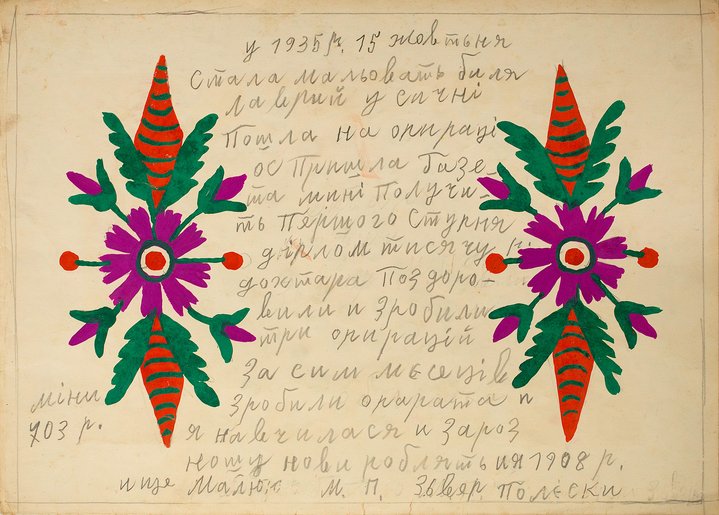 у 1935 р. 15 жовтьня
Стала мальовать биля
лаврий у сичні
пошла на опираці
ос Пришла газе-
та мині получи-
ть першого Ступня
діплом тисячу
дохтара Поздоро-
вили и зробили
три опирацій
За сим мєсеців
Зробили опарата и
міни
703 р.
я навчилася и зароз
ношу нови роблять ия 1908 р.
и ще Малюю М. П. Зьвєр Полєски